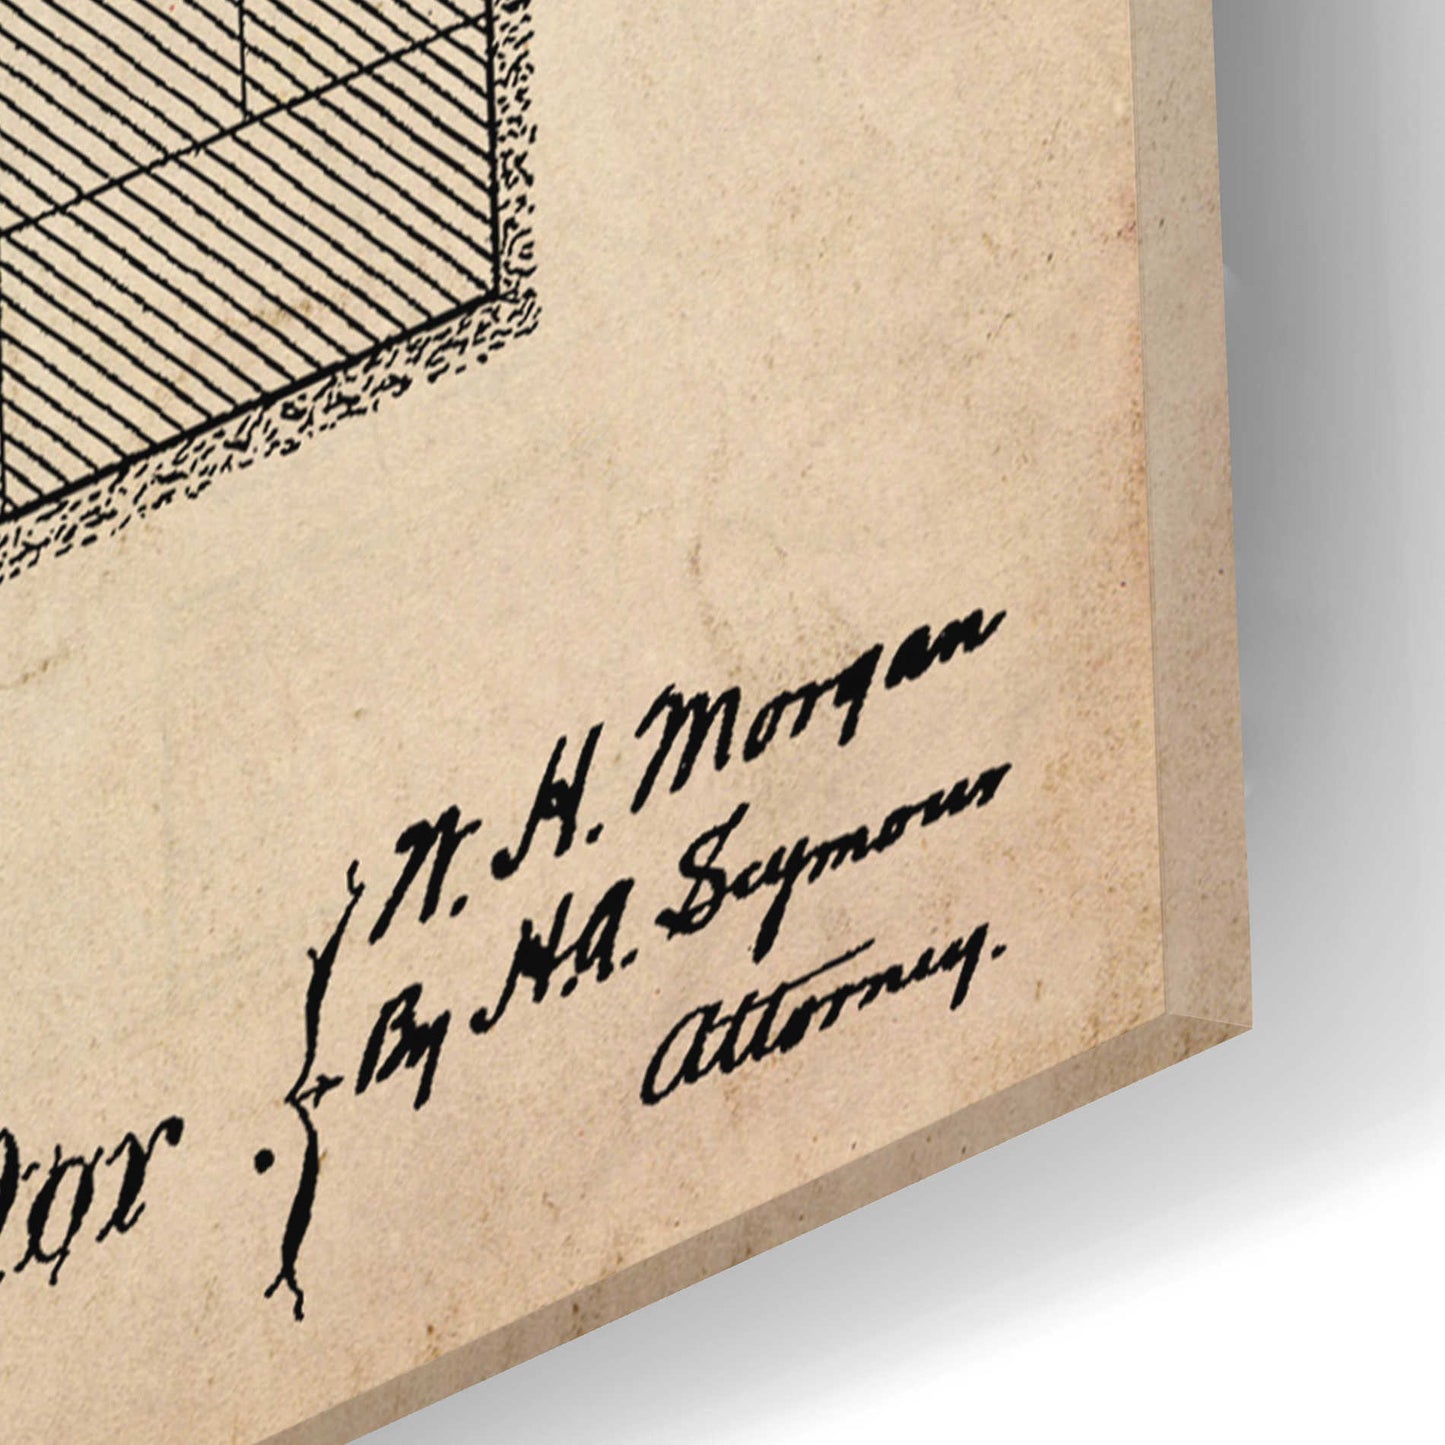 W. H. Morgan
By H.A. Seymour
Attorney.